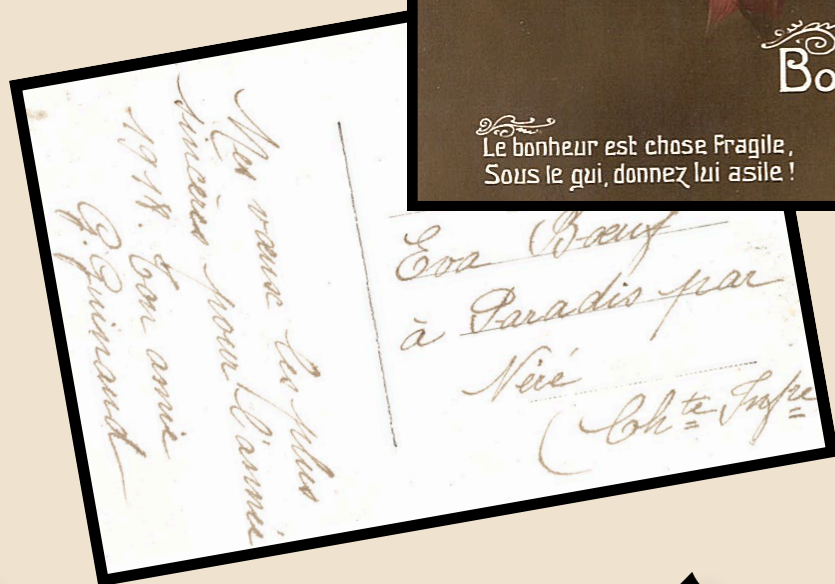 Bo
Le bonheur est chose Fragile,
Sous le gui, donnez lui asile !
Mes vœux les plus
sincères pour l'année
1918. Ton amie
G. Guinaud
Eva Bœuf
à Paradis par
Néré
(Ch^te Inf^re